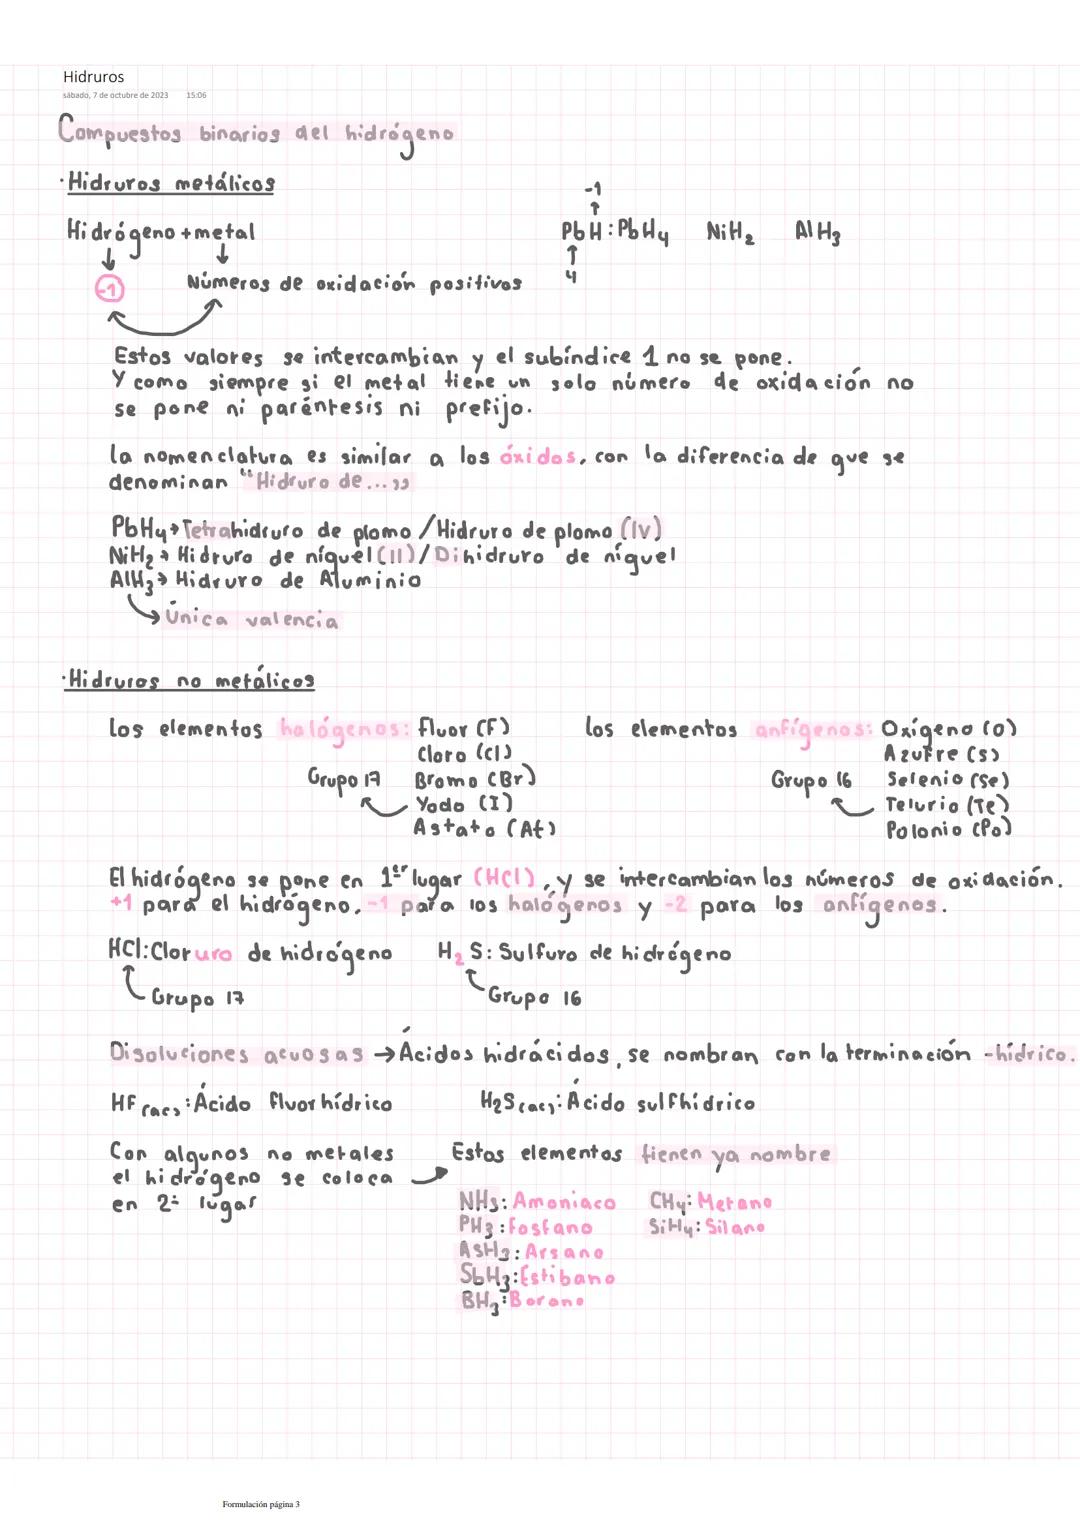 Hidruros
sábado, 7 de octubre de 2023 15:06
Compuestos binarios del hidrógeno
·Hidruros metálicos
-1
Hidrógeno + metal
PbH : PbH4 NiH2 AlH3
-1
Números de oxidación positivos
4
Estos valores se intercambian y el subíndice 1 no se pone.
Y como siempre si el metal tiene un solo número de oxidación no
se pone ni paréntesis ni prefijo.
La nomenclatura es similar a los óxidos, con la diferencia de que se
denominan "Hidruro de..."
PbH4→Tetrahidruro de plomo / Hidruro de plomo (IV)
NiH2→Hidruro de níquel (II) / Dihidruro de níquel
AlH3→Hidruro de Aluminio
→Única valencia
·Hidruros no metálicos
Los elementos halógenos: Fluor (F)
Cloro (Cl)
Grupo 17 Bromo (Br)
Yodo (I)
Astato (At)
Los elementos anfígenos: Oxígeno (O)
Azufre (S)
Grupo 16 Selenio (Se)
Telurio (Te)
Polonio (Po)
El hidrógeno se pone en 1er lugar (HCl), y se intercambian los números de oxidación.
+1 para el hidrógeno, -1 para los halógenos y -2 para los anfígenos.
HCl: Cloruro de hidrógeno H2S: Sulfuro de hidrógeno
Grupo 17 Grupo 16
Disoluciones acuosas → Ácidos hidrácidos, se nombran con la terminación -hídrico.
HF (ac): Ácido fluorhídrico H2S (ac): Ácido sulfhídrico
Con algunos no metales
el hidrógeno se coloca
en 2º lugar
Estos elementos tienen ya nombre
NH3: Amoniaco CH4: Metano
PH3: Fosfano SiH4: Silano
AsH3: Arsano
SbH3: Estibano
BH3: Borano
Formulación página 3